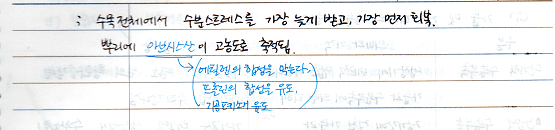 ; 수목전체에서 수분스트레스를 가장 늦게 받고, 가장 먼저 회복.
뿌리에 아브시스산이 고농도로 축적됨.
(에틸렌의 합성을 막는다.
프롤린의 합성을 유도.
기공폐쇄 유도)